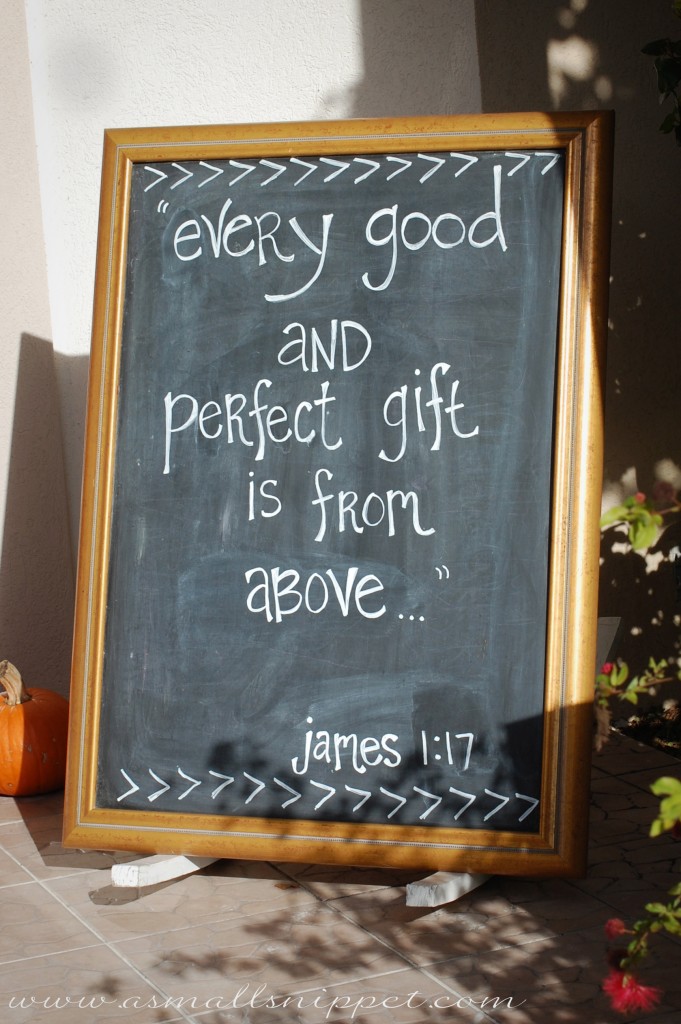 “every good
and
perfect gift
is from
above...”
james 1:17
www.asmallsnippet.com